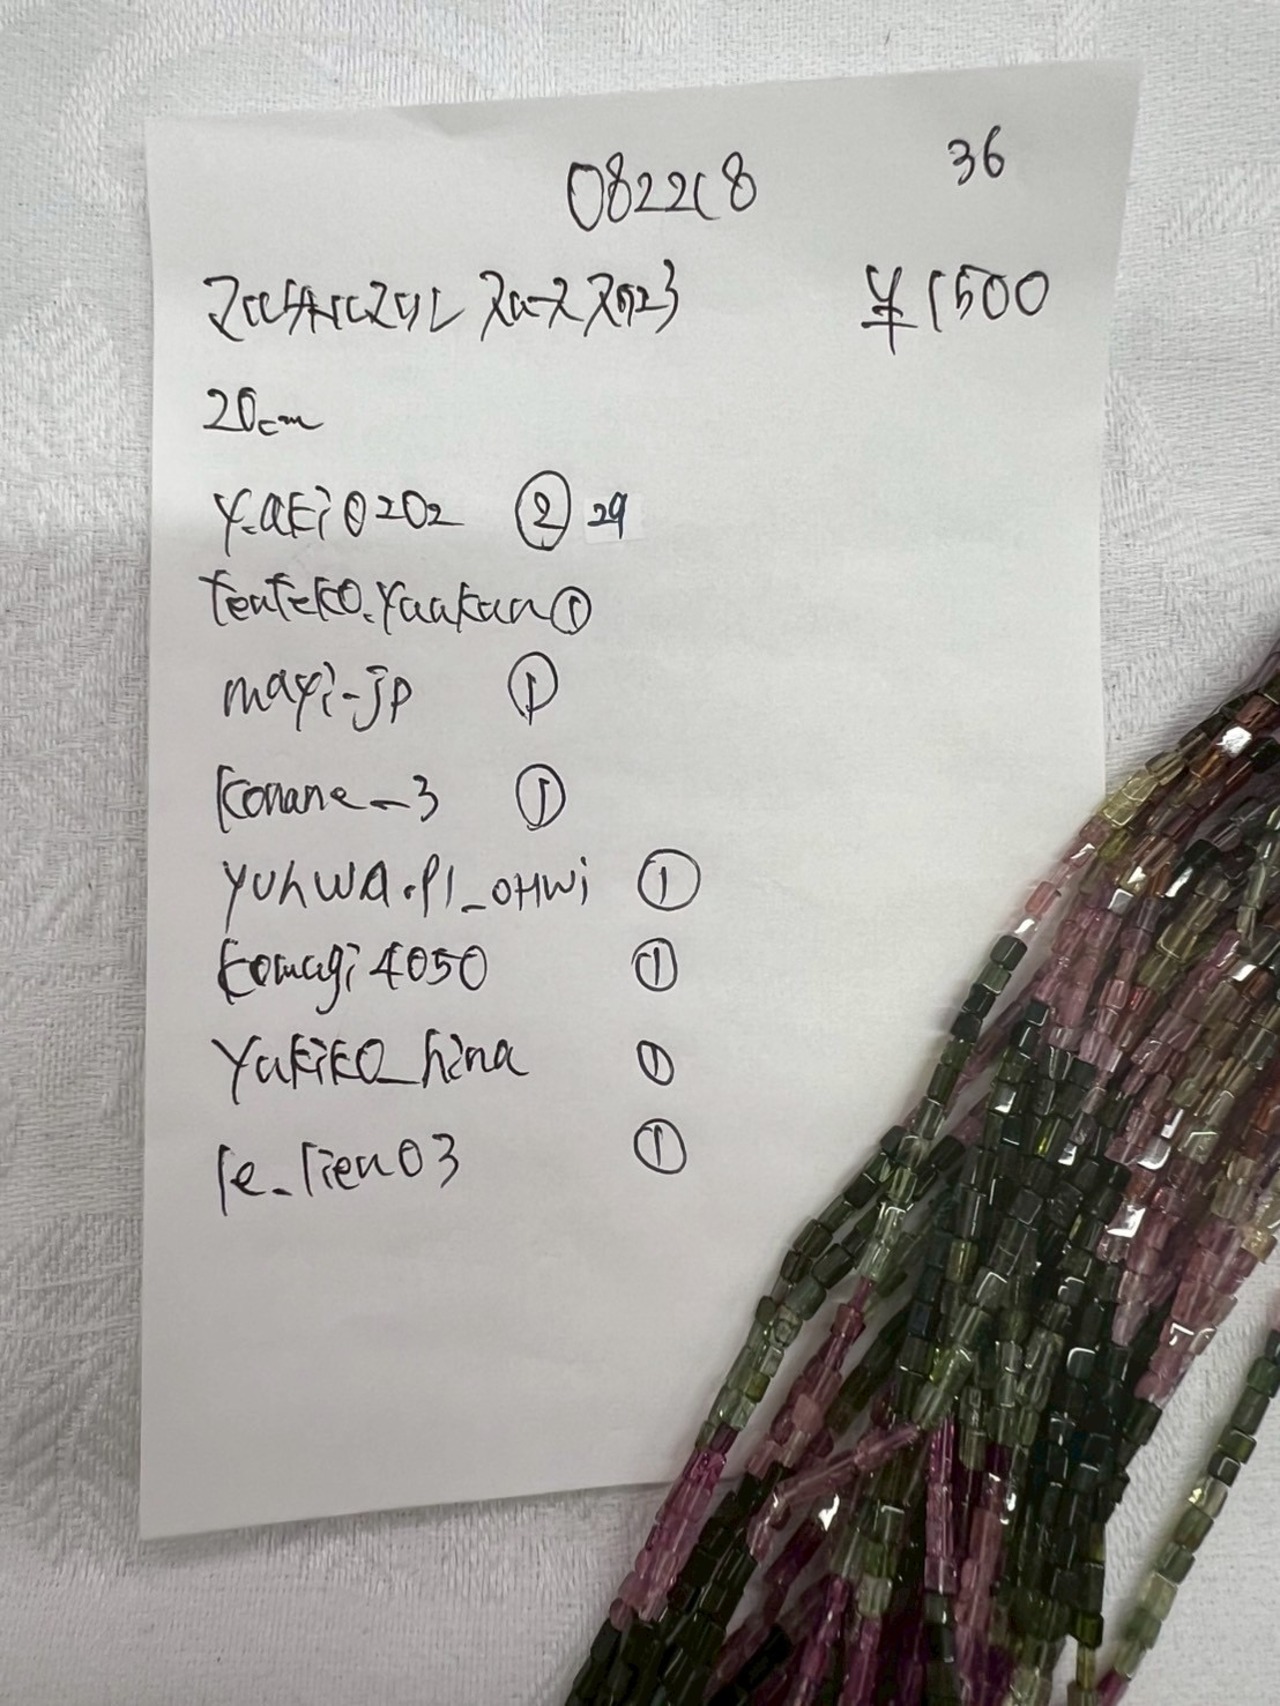 0822C8 36
¥1500
20cm
y.aki0202 ② 29
teuteko.yaakan ①
mayi-jp ①
konane_3 ①
yuhwa.pl_OHWi ①
komagi4050 ①
yukiko_hina ①
le_lien03 ①